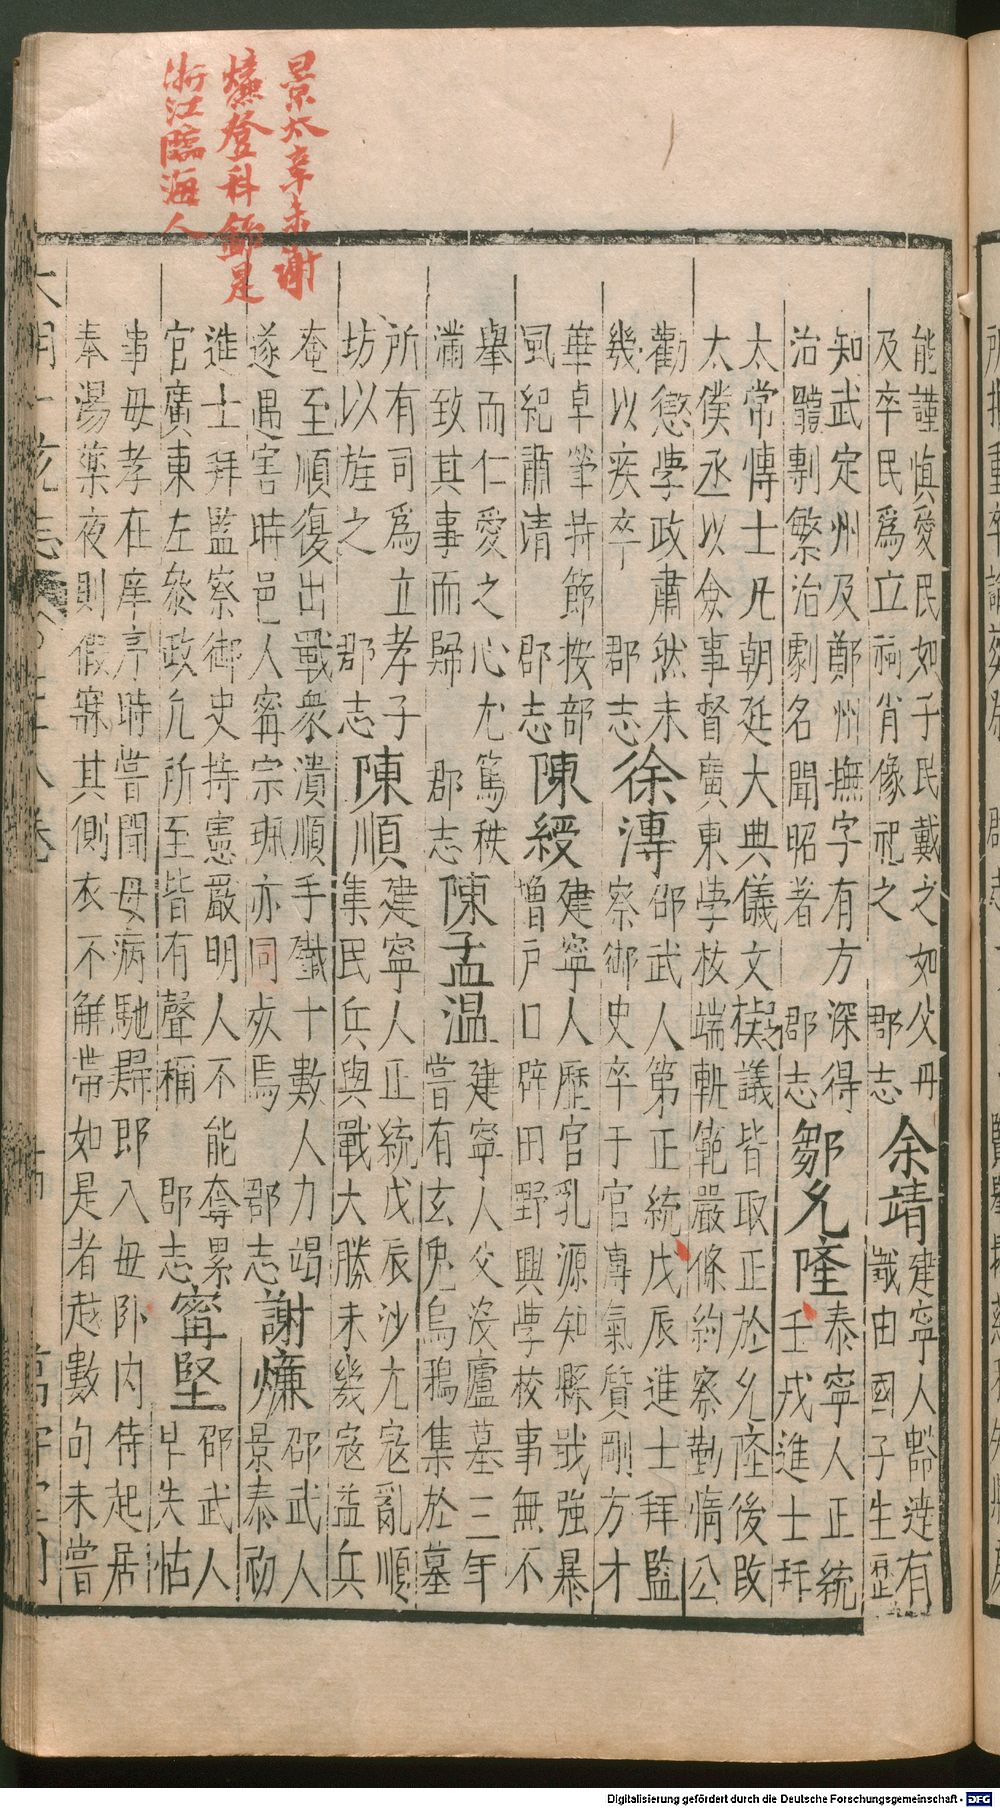 景太辛未謝
爊登科錄是
浙江臨海人
能謹愼愛民如子民戴之如父母
及卒民爲立祠肖像祀之 郡志
余靖
建寧人豁達有
識由國子生歷
知武定州及鄭州撫字有方深得
治體剸繁治劇名聞昭著 郡志
鄒允隆
泰寧人正統
壬戌進士拜
太常博士凡朝廷大典儀文擬議皆取正於允隆後改
太僕丞以僉事督廣東學校端軌範嚴條約察勤惰公
勸懲學政肅然未
幾以疾卒 郡志
徐溥
邵武人第正統戊辰進士拜監
察御史卒于官溥氣質剛方才
華卓犖持節按部
風紀肅清 郡志
陳綬
建寧人歷官乳源知縣戢強暴
增戶口辟田野興學校事無不
舉而仁愛之心尤篤秩
滿致其事而歸 郡志
陳孟溫
建寧人父沒廬墓三年
嘗有玄兔烏鴉集於墓
所有司爲立孝子
坊以旌之 郡志
陳順
建寧人正統戊辰沙尤寇亂順
集民兵與戰大勝未幾寇益兵
奄至順復出戰衆潰順手鐵十數人力竭
遂遇害時邑人甯宗珮亦同死焉 郡志
謝爊
邵武人
景泰初
進士拜監察御史持憲嚴明人不能奪累
官廣東左叅政凢所至皆有聲稱 郡志
甯堅
邵武人
早失怙
事母孝在庠序時嘗聞母病馳歸即入母卧內侍起居
奉湯藥夜則假寐其側衣不解帶如是者越數旬未嘗
Digitalisierung gefördert durch die Deutsche Forschungsgemeinschaft - DFG